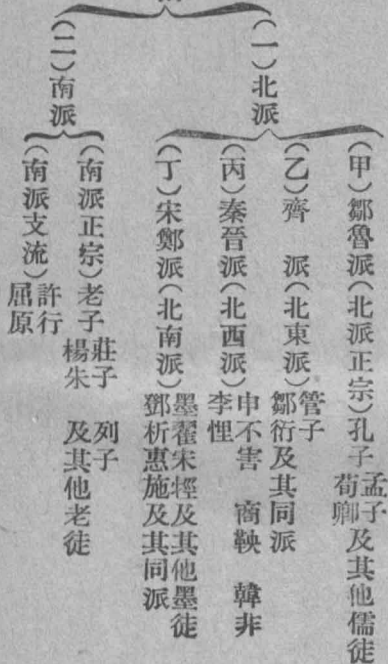 （一）北派
（甲）鄒魯派（北派正宗）孔子 孟子 荀卿 及其他儒徒
（乙）齊　派（北東派）管子 鄒衍及其同派
（丙）秦晉派（北西派）申不害　商鞅　韓非 李悝
（丁）宋鄭派（北南派）墨翟宋牼及其他墨徒 鄧析惠施及其同派
（二）南派
（南派正宗）老子 莊子　列子 楊朱　及其他老徒
（南派支流）許行 屈原